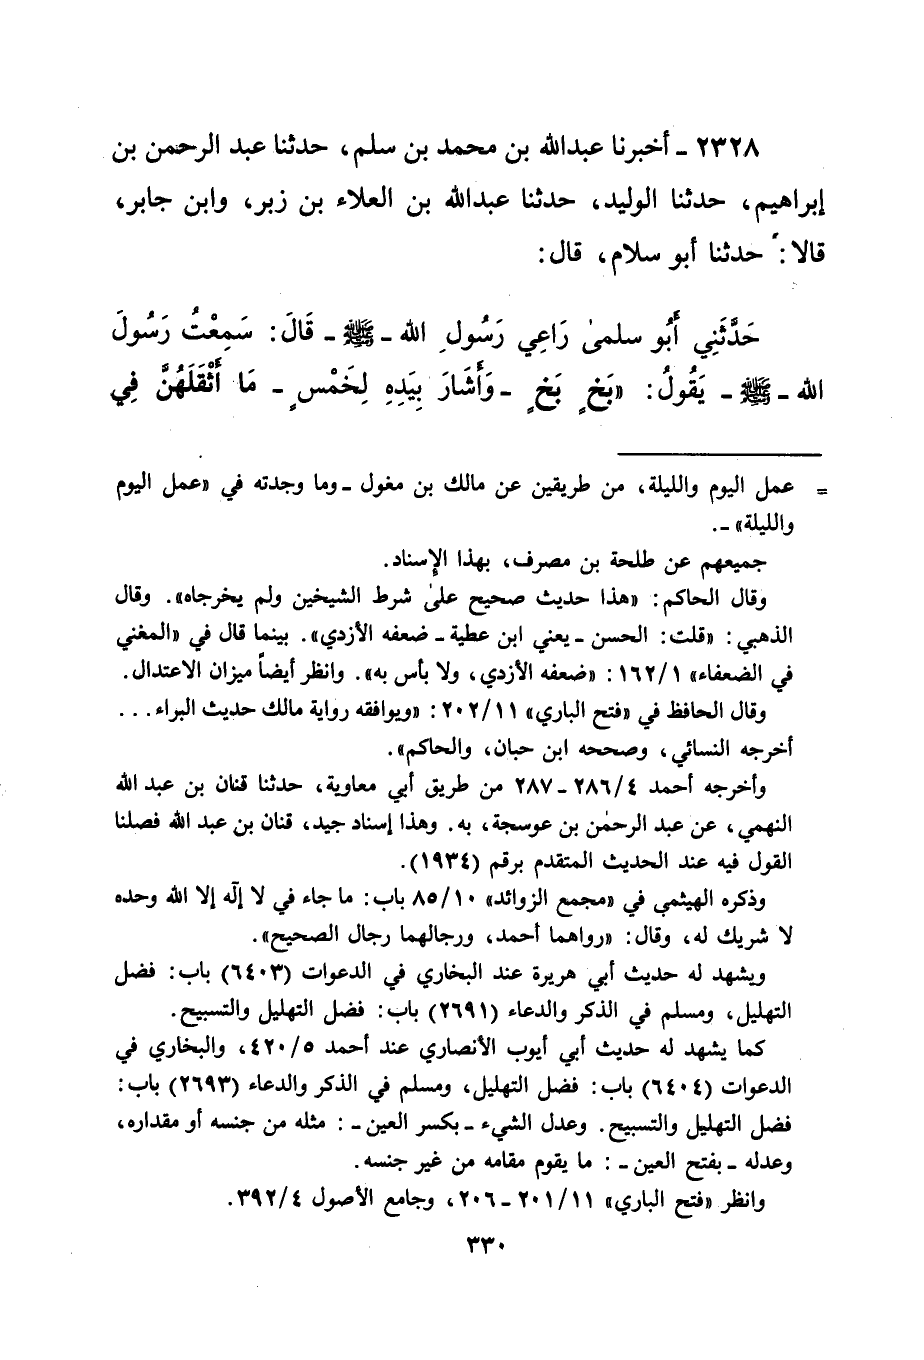 ٢٣٢٨ ـ أخبرنا عبدالله بن محمد بن سلم، حدثنا عبد الرحمن بن
إبراهيم، حدثنا الوليد، حدثنا عبدالله بن العلاء بن زبر، وابن جابر،
قالا: حدثنا أبو سلام، قال:
حَدَّثَنِي أَبُو سلمىٰ رَاعِي رَسُولِ الله ـ ﷺ ـ قَالَ: سَمِعْتُ رَسُولَ
الله ـ ﷺ ـ يَقُولُ: «بَخٍ بَخٍ ـ وَأَشَارَ بِيَدِهِ لِخَمْسٍ ـ مَا أَثْقَلَهُنَّ فِي
= عمل اليوم والليلة، من طريقين عن مالك بن مغول ـ وما وجدته في «عمل اليوم
والليلة» ـ.
جميعهم عن طلحة بن مصرف، بهذا الإسناد.
وقال الحاكم: «هذا حديث صحيح علىٰ شرط الشيخين ولم يخرجاه». وقال
الذهبي: «قلت: الحسن ـ يعني ابن عطية ـ ضعفه الأزدي». بينما قال في «المغني
في الضعفاء» ١٦٢/١: «ضعفه الأزدي، ولا بأس به». وانظر أيضاً ميزان الاعتدال.
وقال الحافظ في «فتح الباري» ٢٠٢/١١: «ويوافقه رواية مالك حديث البراء ...
أخرجه النسائي، وصححه ابن حبان، والحاكم».
وأخرجه أحمد ٢٨٦/٤ ـ ٢٨٧ من طريق أبي معاوية، حدثنا قنان بن عبد الله
النهمي، عن عبد الرحمٰن بن عوسجة، به. وهذا إسناد جيد، قنان بن عبد الله فصلنا
القول فيه عند الحديث المتقدم برقم (١٩٣٤).
وذكره الهيثمي في «مجمع الزوائد» ٨٥/١٠ باب: ما جاء في لا إلٰه إلا الله وحده
لا شريك له، وقال: «رواهما أحمد، ورجالهما رجال الصحيح».
ويشهد له حديث أبي هريرة عند البخاري في الدعوات (٦٤٠٣) باب: فضل
التهليل، ومسلم في الذكر والدعاء (٢٦٩١) باب: فضل التهليل والتسبيح.
كما يشهد له حديث أبي أيوب الأنصاري عند أحمد ٤٢٠/٥، والبخاري في
الدعوات (٦٤٠٤) باب: فضل التهليل، ومسلم في الذكر والدعاء (٢٦٩٣) باب:
فضل التهليل والتسبيح. وعدل الشيء ـ بكسر العين ـ: مثله من جنسه أو مقداره،
وعدله ـ بفتح العين ـ: ما يقوم مقامه من غير جنسه.
وانظر «فتح الباري» ٢٠١/١١ ـ ٢٠٦، وجامع الأصول ٣٩٢/٤.
٣٣٠